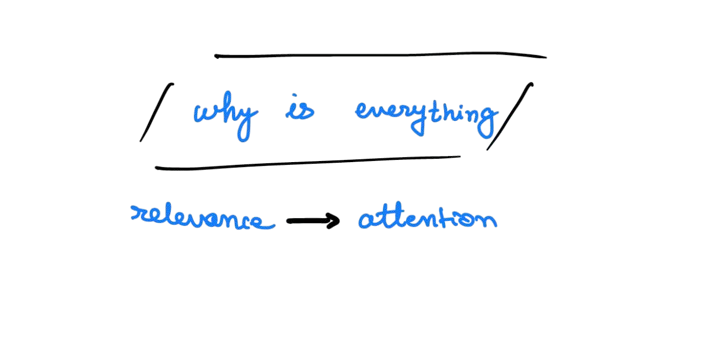 why is everything
relevance → attention